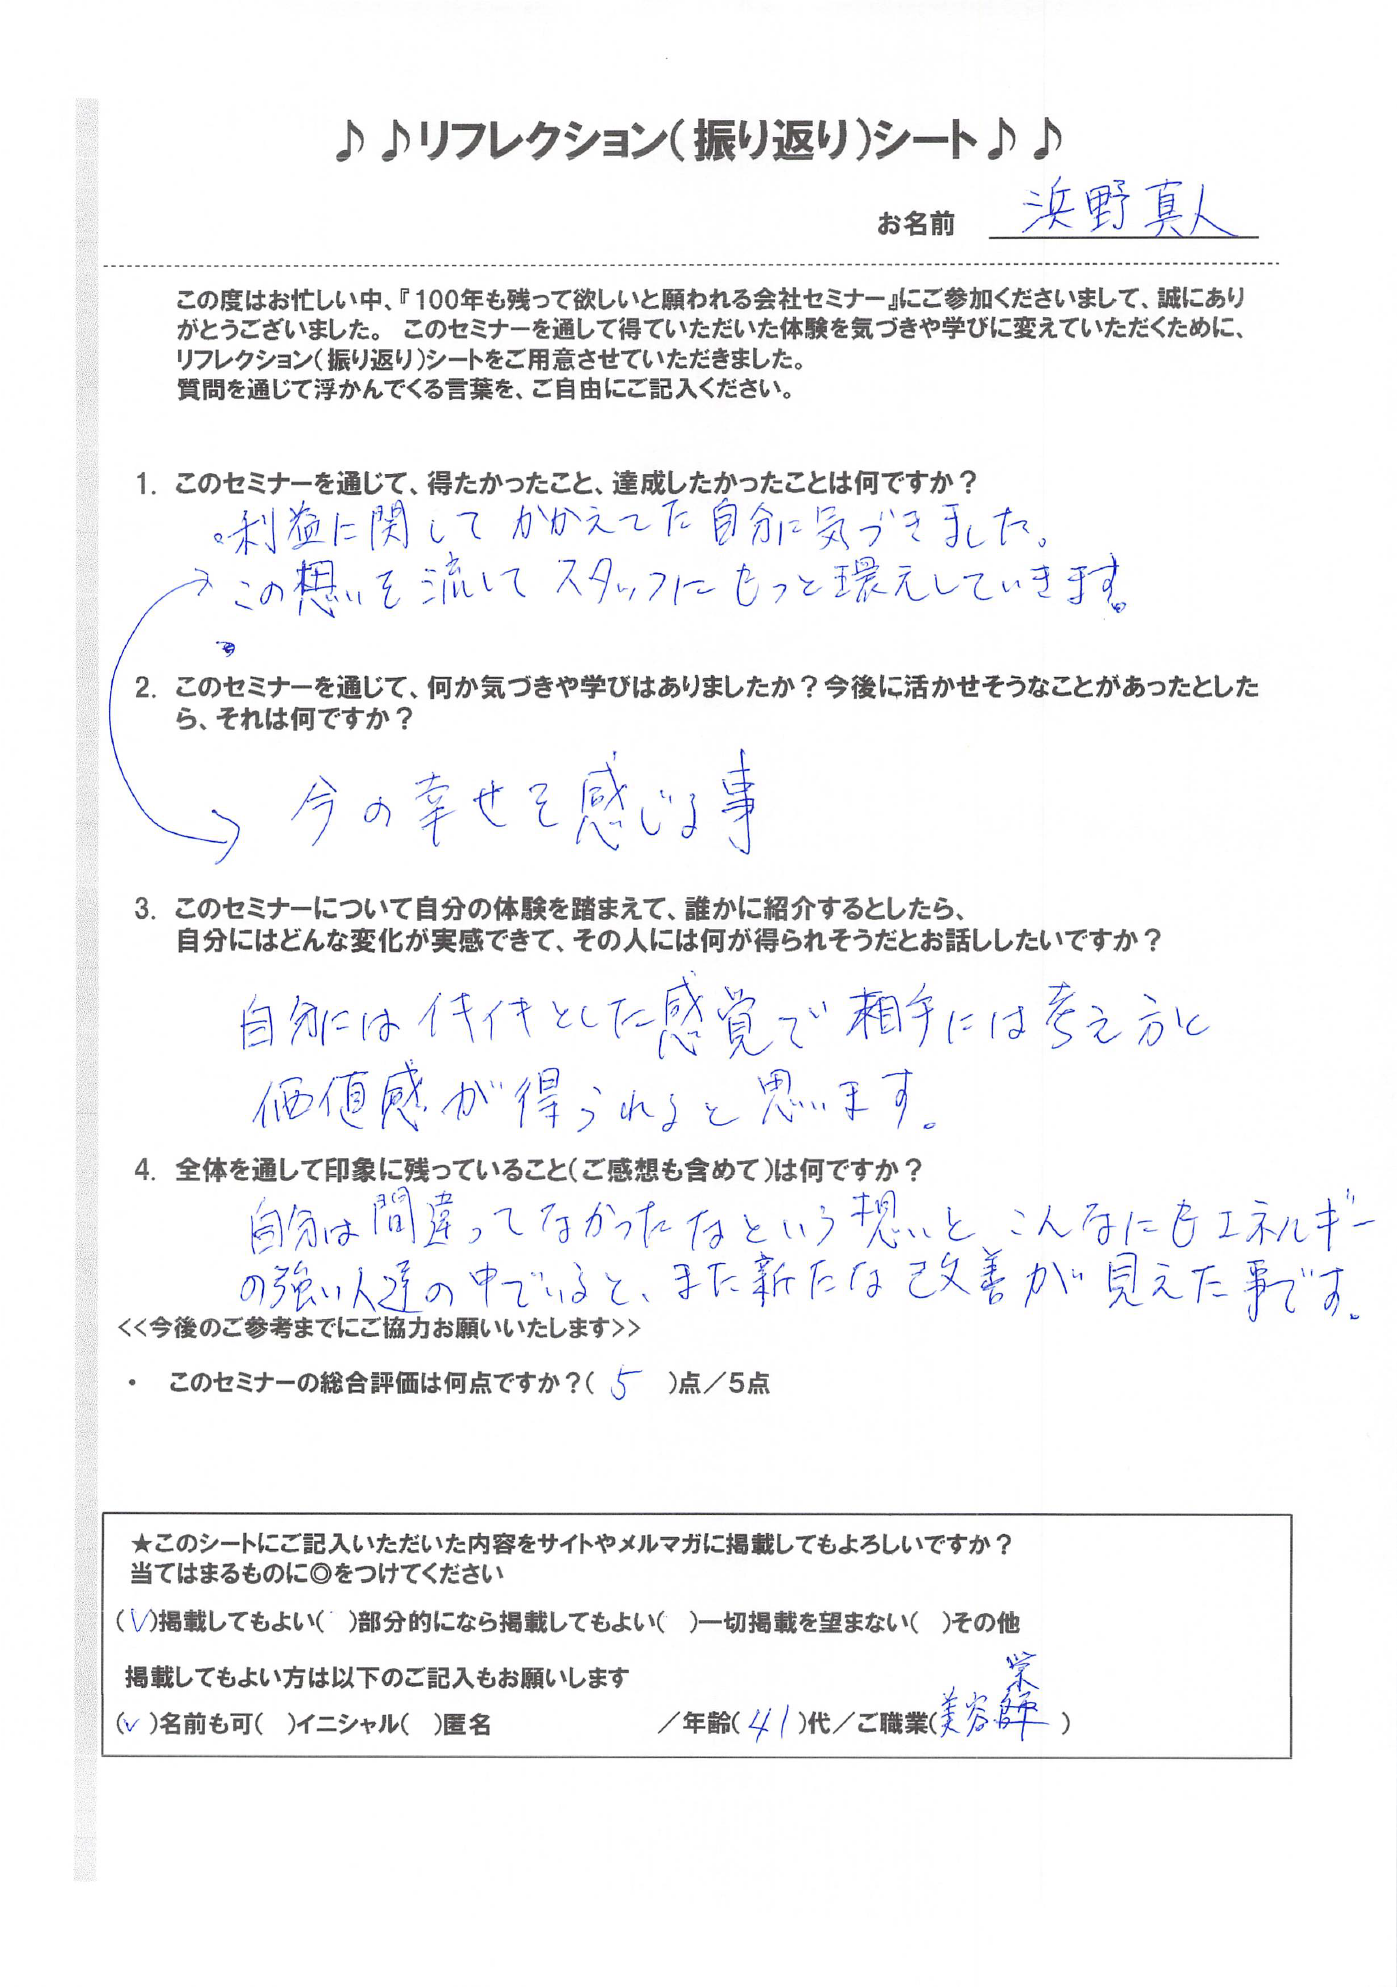 ♪♪リフレクション(振り返り)シート♪♪
お名前 浜野真人
この度はお忙しい中、『100年も残って欲しいと願われる会社セミナー』にご参加くださいまして、誠にあり
がとうございました。 このセミナーを通して得ていただいた体験を気づきや学びに変えていただくために、
リフレクション(振り返り)シートをご用意させていただきました。
質問を通じて浮かんでくる言葉を、ご自由にご記入ください。
1. このセミナーを通じて、得たかったこと、達成したかったことは何ですか？
。利益に関してかかえてた自分に気づきました。
この想いを流してスタッフにもっと環えしていきます。
2. このセミナーを通じて、何か気づきや学びはありましたか？今後に活かせそうなことがあったとした
ら、それは何ですか？
今の幸せを感じる事
3. このセミナーについて自分の体験を踏まえて、誰かに紹介するとしたら、
自分にはどんな変化が実感できて、その人には何が得られそうだとお話ししたいですか？
自分にはイキイキとした感覚で相手には考え方と
価値感が得られると思います。
4. 全体を通して印象に残っていること(ご感想も含めて)は何ですか？
自分は間違ってなかったなという想いと、こんなにもエネルギー
の強い人達の中でいると、また新たな改善が見えた事です。
<<今後のご参考までにご協力お願いいたします>>
・ このセミナーの総合評価は何点ですか？( 5 )点／5点
★このシートにご記入いただいた内容をサイトやメルマガに掲載してもよろしいですか？
当てはまるものに◎をつけてください
(✓)掲載してもよい( )部分的になら掲載してもよい( )一切掲載を望まない( )その他
掲載してもよい方は以下のご記入もお願いします
(✓)名前も可( )イニシャル( )匿名 ／年齢(41)代／ご職業(美容師)